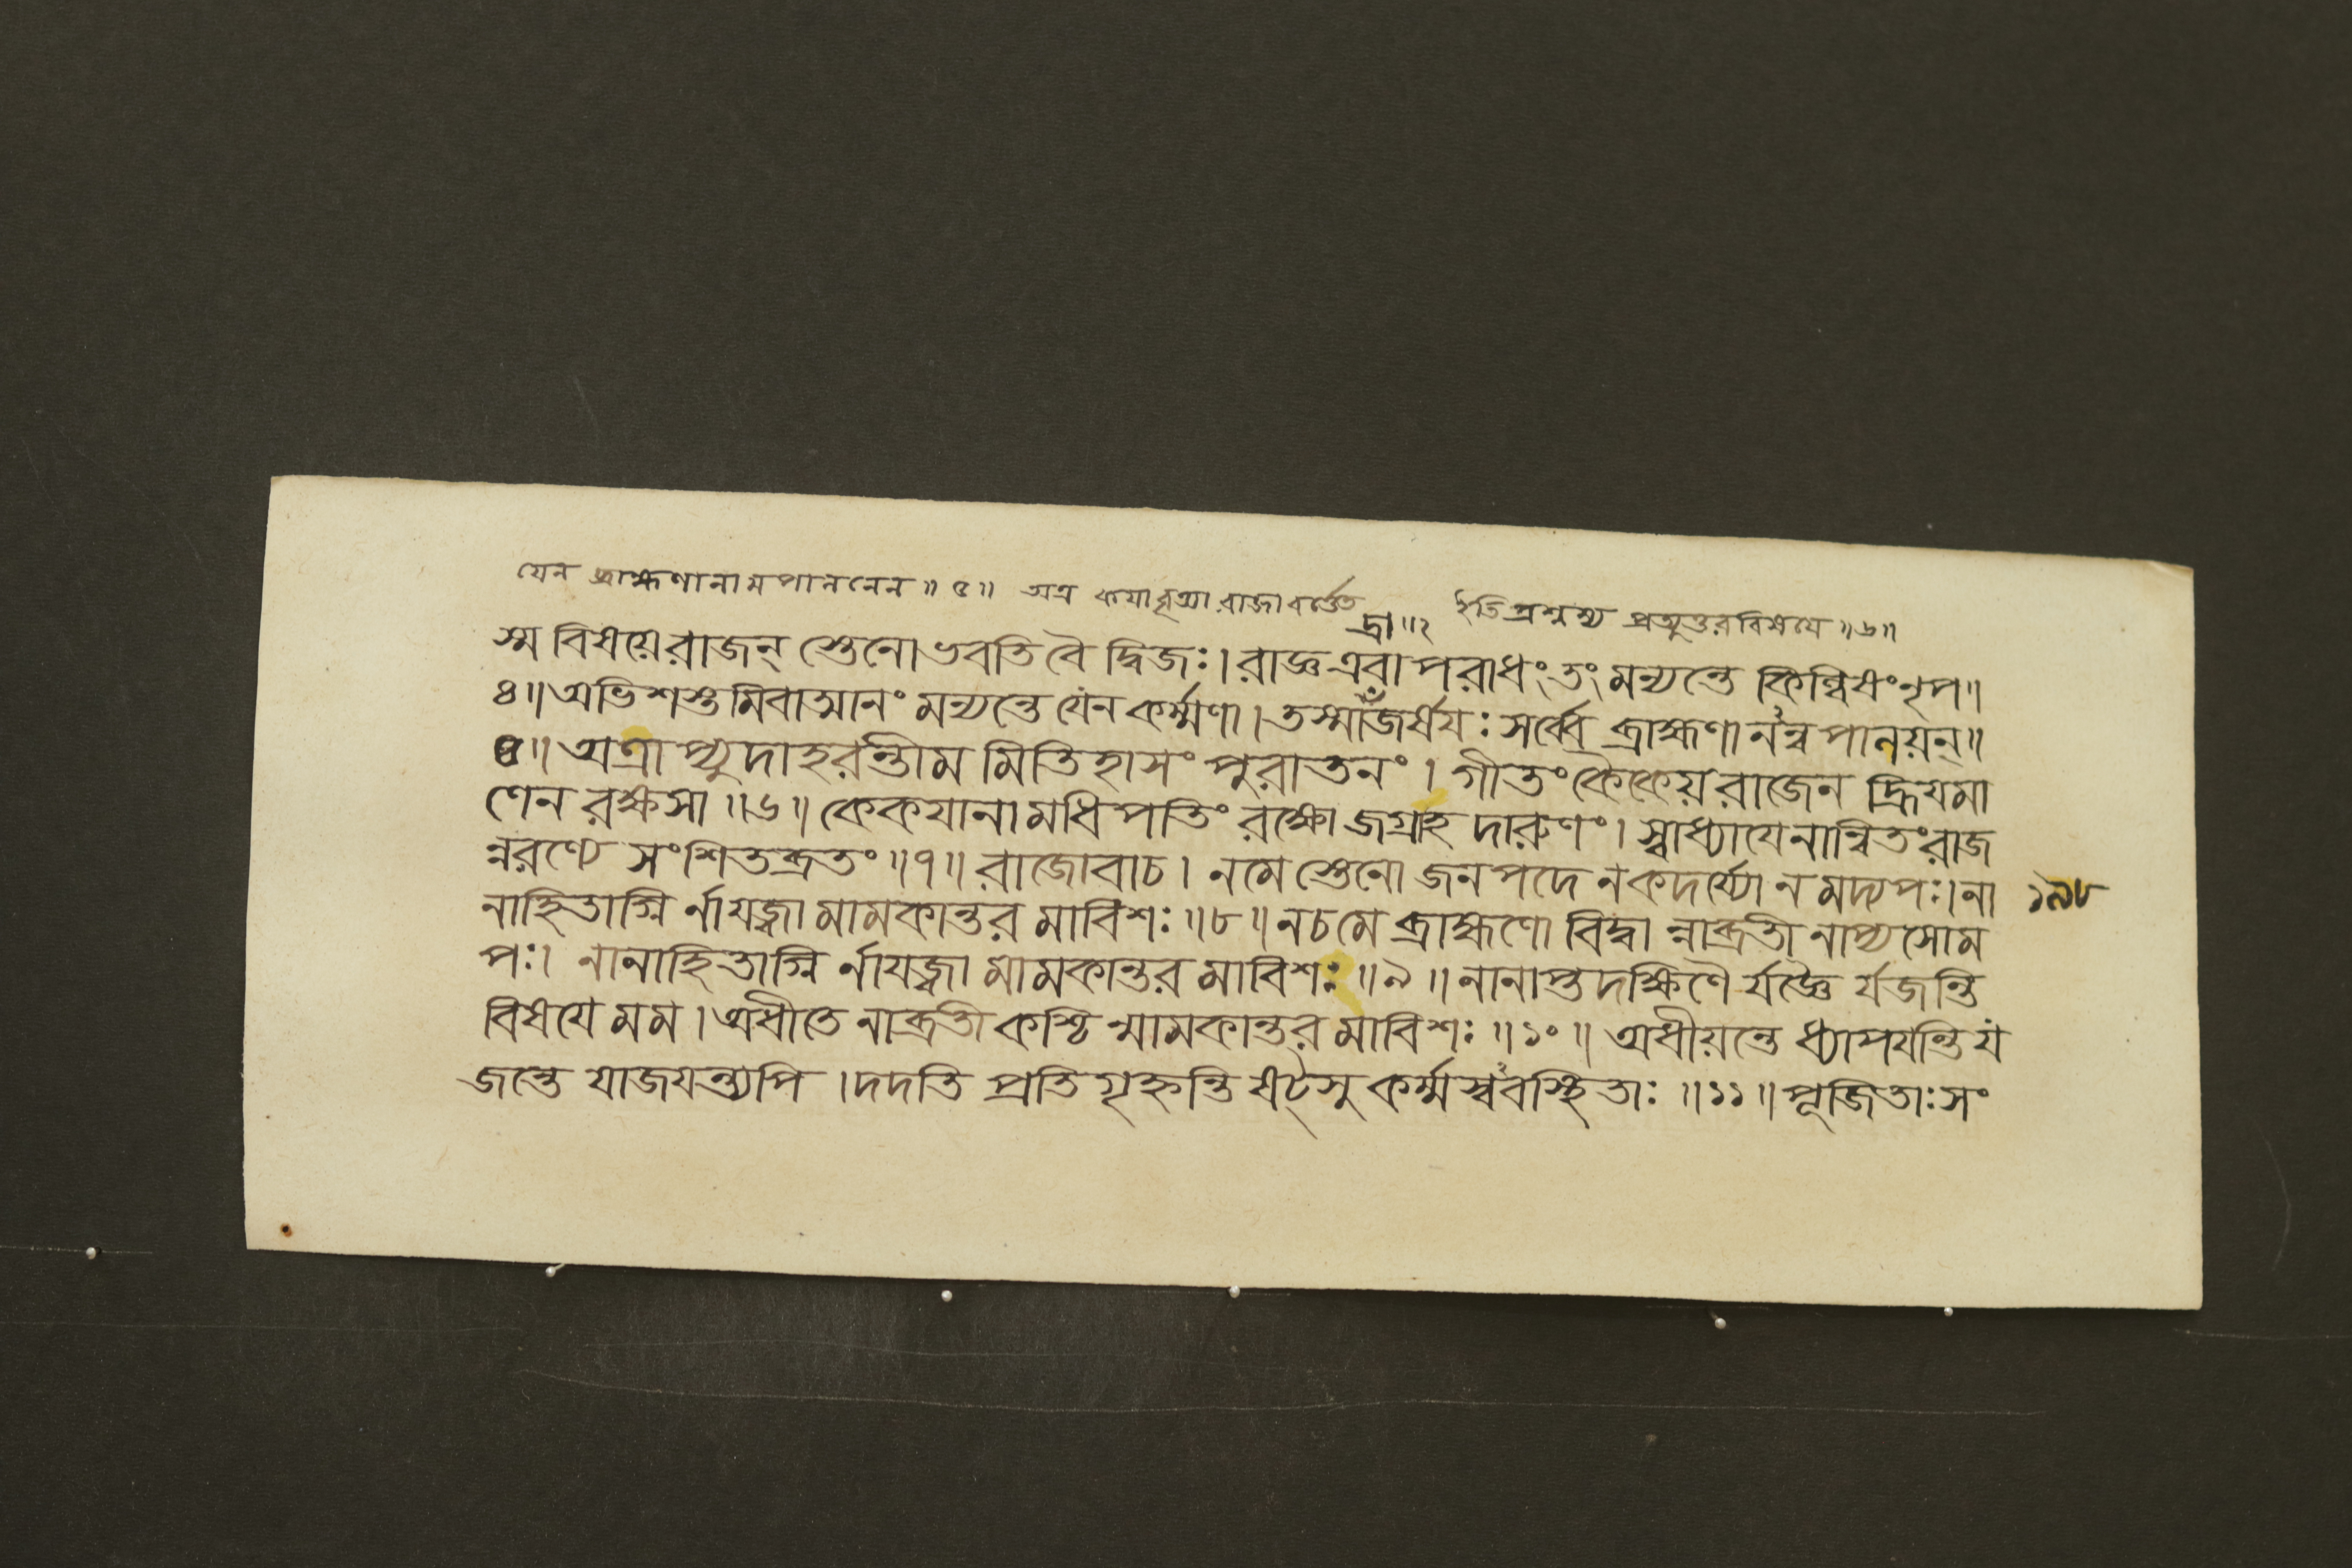 যেন ব্রাহ্মণানামপালনেন॥ ৫॥ অত্র কয়াবৃত্ত্যা রাজাবর্ত্তেত ইতিপ্রশ্নস্য প্রত্যুত্তরবিষয়ে॥৬॥
দ্রা॥২
স্য বিষয়ে রাজন্ স্তেনো ভবতি বৈ দ্বিজঃ। রাজ্ঞ এবাপরাধং তং মন্যন্তে কিল্বিষং নৃপ॥
৪॥ অভিশস্তমিবাত্মানং মন্যন্তে যেন কর্ম্মণা। তস্মাদ্রাজর্ষয়ঃ সর্ব্বে ব্রাহ্মণানন্বপালয়ন্॥
৫॥ অত্রাপ্যুদাহরন্তীমমিতিহাসং পুরাতনং। গীতং কৈকেয়রাজেন হ্রিয়মা
ণেন রক্ষসা॥৬॥ কেকয়ানামধিপতিং রক্ষো জগ্রাহ দারুণং। স্বাধ্যায়েনান্বিতং রাজ
ন্নরণ্যে সংশিতব্রতং॥৭॥ রাজোবাচ। ন মে স্তেনো জনপদে ন কদর্য্যো ন মদ্যপঃ। না
নাহিতাগ্নি র্নাযজ্বা মামকান্তরমাবিশঃ॥৮॥ ন চ মে ব্রাহ্মণো বিদ্বা ন্নাব্রতী নাপ্যসোম
পঃ। নানাহিতাগ্নি র্নাযজ্বা মামকান্তরমাবিশঃ॥৯॥ নানাপ্তদক্ষিণৈ র্যজ্ঞৈ র্যজন্তি
বিষয়ে মম। অধীতে নাব্রতী কশ্চি ন্মামকান্তরমাবিশঃ॥১০॥ অধীয়ন্তে ধ্যাপয়ন্তি য
জন্তে যাজয়ন্ত্যপি। দদতি প্রতিগৃহ্নন্তি ষট্সু কর্ম্মস্ববস্থিতাঃ॥১১॥ পূজিতাঃ সং
১৯৮